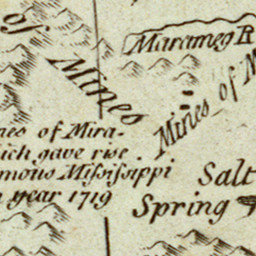 of Mines
Marameg R
Mines of M
nes of Mira-
ich gave rise
mous Missisippi
year 1719
Salt
Spring